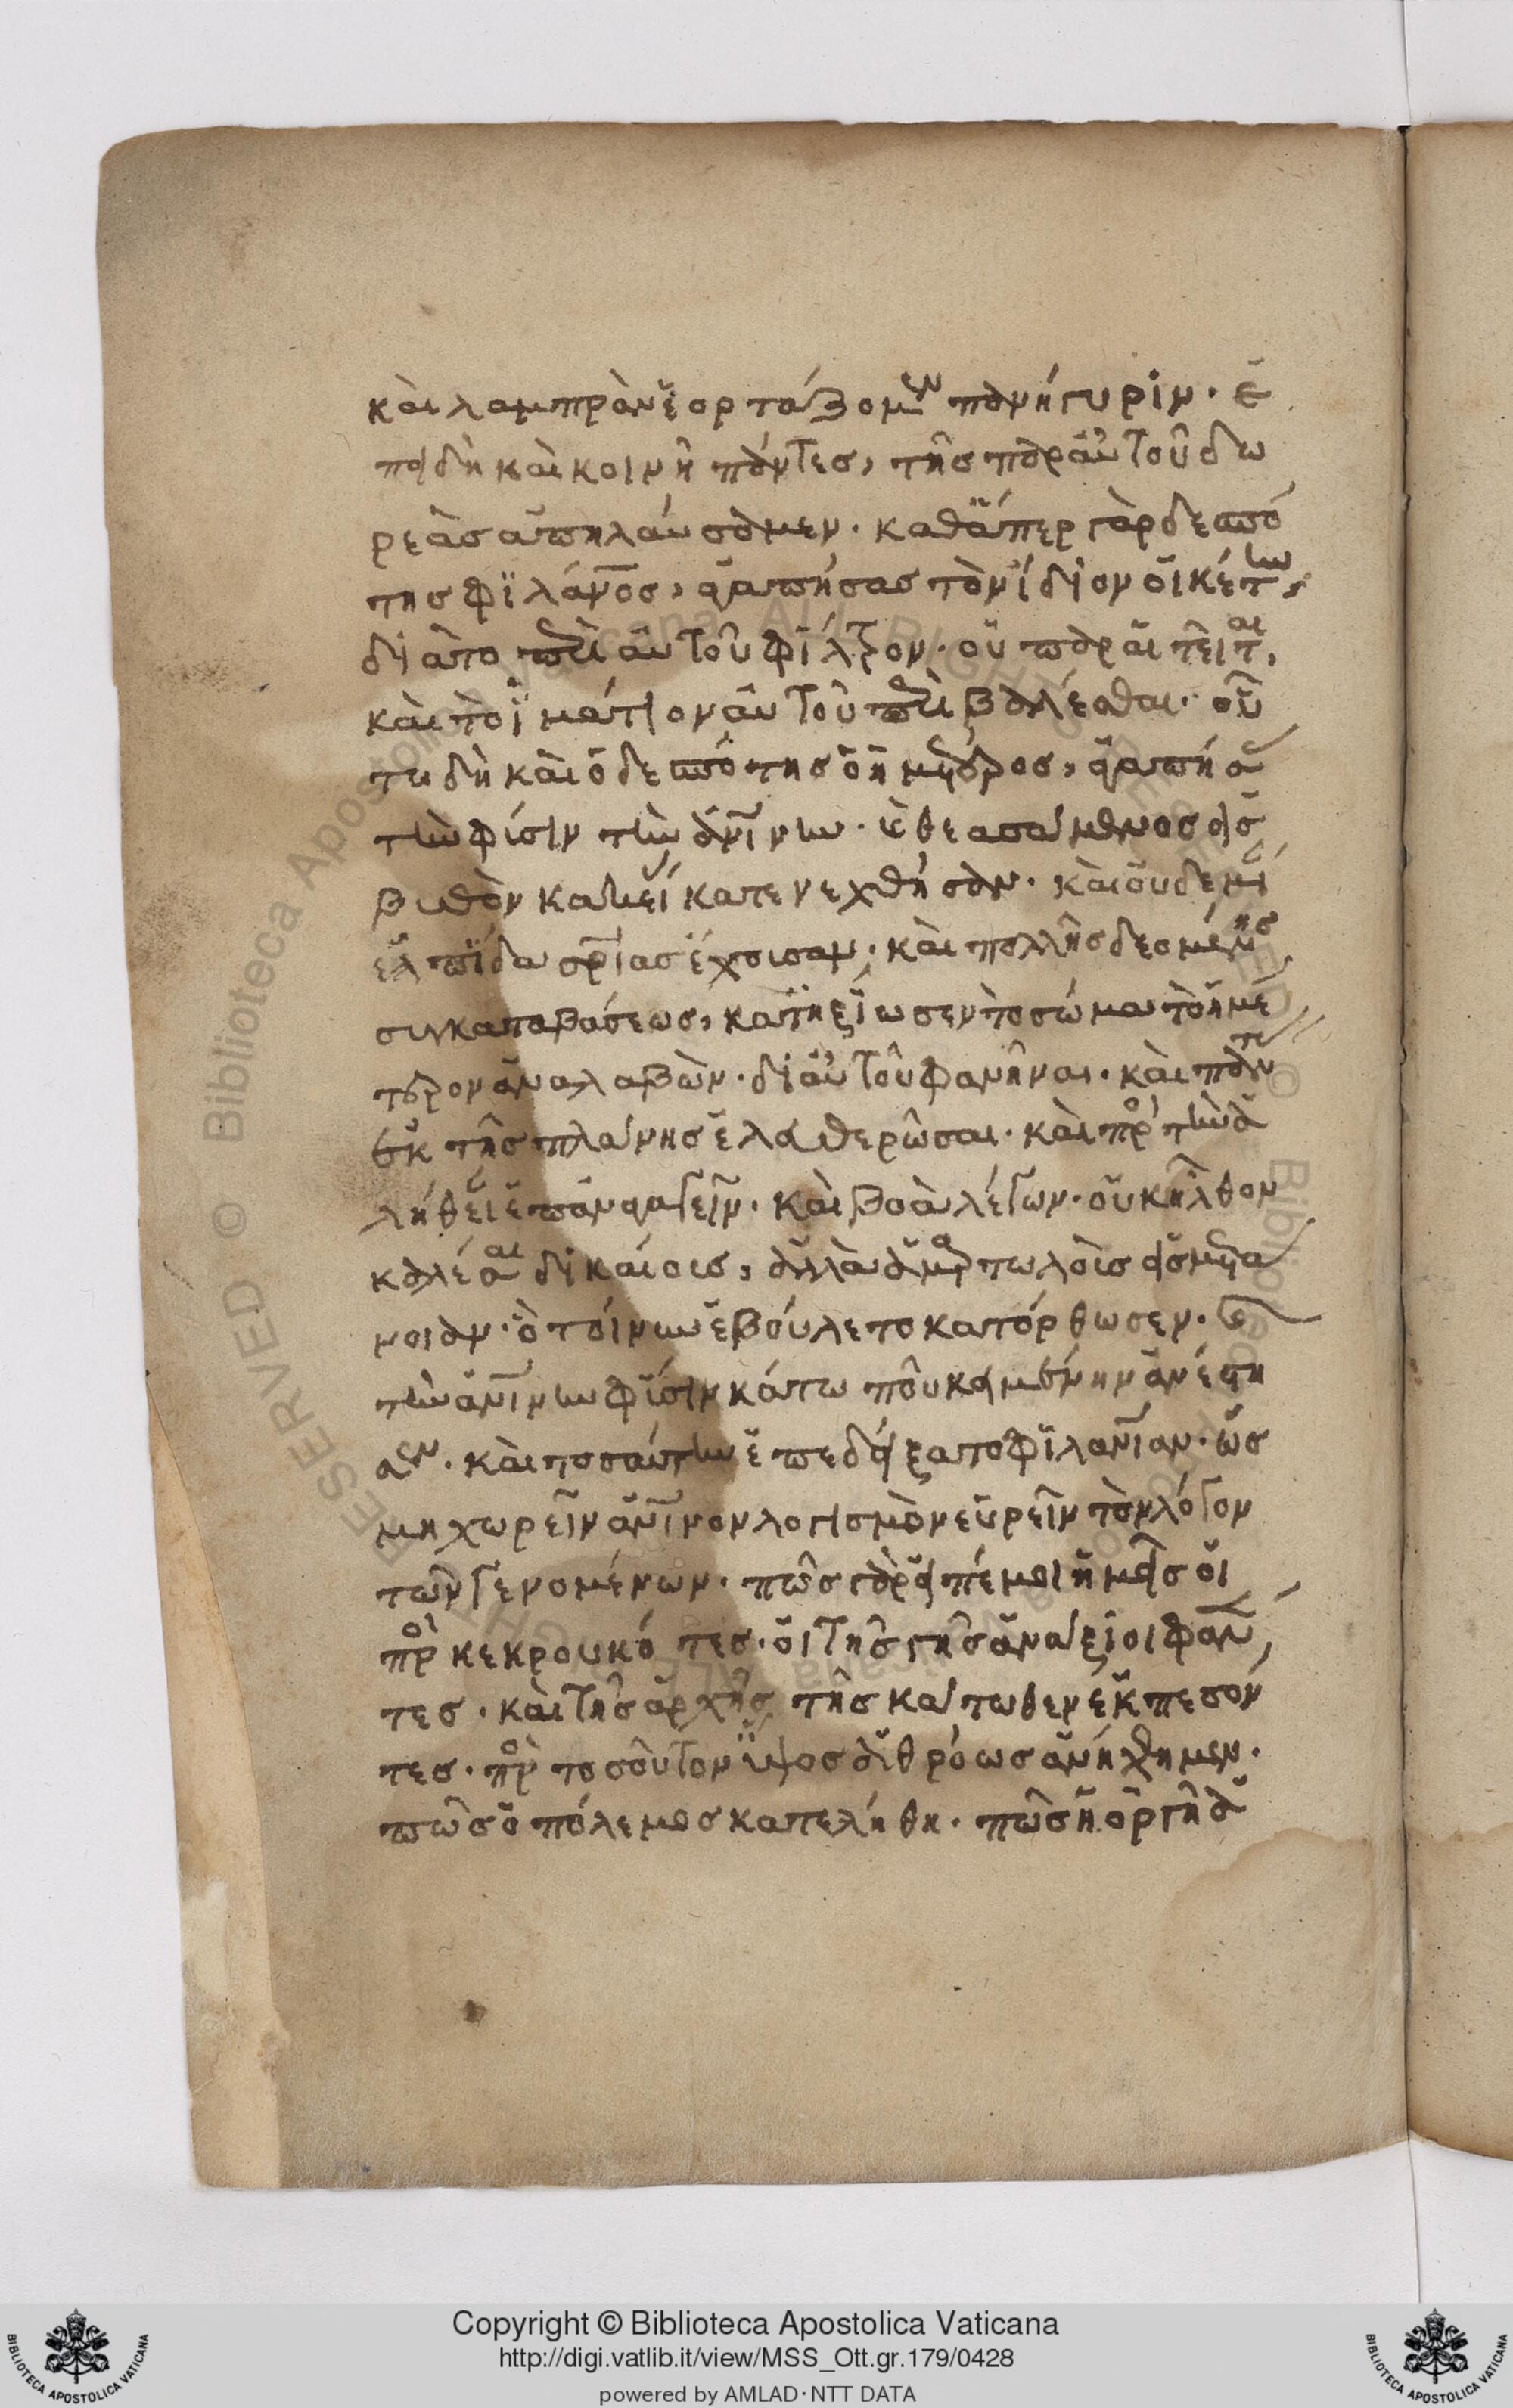 κὰι λαμπρὰν ἑορτάζομεν πανήγυριν· ἐ
πειδὴ κὰι κοινῆ πάντες, τῆς παρ αὐτοῦ δω
ρεὰς ἀπηλάυσαμεν· καθάπερ γὰρ δεσπό
της φιλάνος, ἀγαπήσας τὸν ἴδιον οἰκέτην,
διὰ τὸ περὶ αὐτοῦ φίλτρον· οὐ παραιτεῖται,
κὰι τὸ ἱμάτιον αὐτοῦ περιβαλέσθαι· οὕ
τω δὴ κὰι ὁ δεσπότης ὁ ἡμέτερος, ἀγαπήσας
τὴν φύσιν τὴν ἀνίνην· θεασάμενος εἰς
βυθὸν κακίας κατενεχθήσαν· κὰι οὐδεμί
ἐλπίδα σρίας ἔχουσαν· κὰι πολλῆς δεομένης
συγκαταβάσεως, κατηξίωσεν τὸ σῶμα τὸ ἡμέ
τερον ἀναλαβὼν· δι αὐτοῦ φανῆναι· κὰι πάντ
ἐκ τῆς πλάνης ἐλευθερῶσαι· κὰι πρὸς τὴν ἀ
λήθειαν ἐπαναγαγεῖν· κὰι βοᾶ λέγων· οὐκ ἦλθον
καλέσαι δικάιους, ἀλλὰ ἁμαρτωλοὺς εἰς μετά
νοιαν· ὃ τοίνυν ἐβούλετο κατόρθωσεν·
τὴν ἀνίνην φύσιν κάτω που κειμένην ἀνέστη
σεν· κὰι τοσαύτην ἐπεδείξατο φιλανίαν· ὡς
μη χωρεῖν ἀνίνον λογισμὸν εὑρεῖν τὸν λόγον
τῶν γενομένων· πῶς γὰρ εἰπέ μοι ἡμεῖς οἱ
προσκεκρουκότες· οἱ τῆς γῆς ἀνάξιοι φανέν
τες· κὰι τῆς ἀρχῆς τῆς κάτωθεν ἐκπεσόν
τες· πρὸς τοσοῦτον ὕψος ἀθρόως ἀνήχθημεν·
πῶς ὁ πόλεμος κατελήθη· πῶς ἡ ὀργὴ ἀ
Copyright © Biblioteca Apostolica Vaticana
http://digi.vatlib.it/view/MSS_Ott.gr.179/0428
powered by AMLAD·NTT DATA